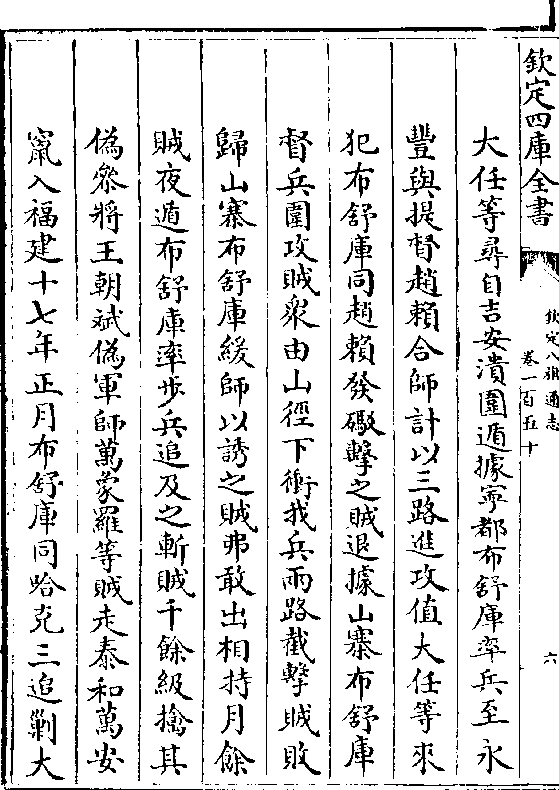 欽定四庫全書
欽定八旗通志
卷一百五十
六
大任等尋自吉安潰圍遁據寧都布舒庫率兵至永
豐與提督趙賴合師計以三路進攻值大任等來
犯布舒庫同趙賴發礮擊之賊退據山寨布舒庫
督兵圍攻賊衆由山徑下衝我兵兩路截擊賊敗
歸山寨布舒庫緩師以誘之賊弗敢出相持月餘
賊夜遁布舒庫率步兵追及之斬賊千餘級擒其
偽叅將王朝斌偽軍師萬象羅等賊走泰和萬安
竄入福建十七年正月布舒庫同哈克三追剿大